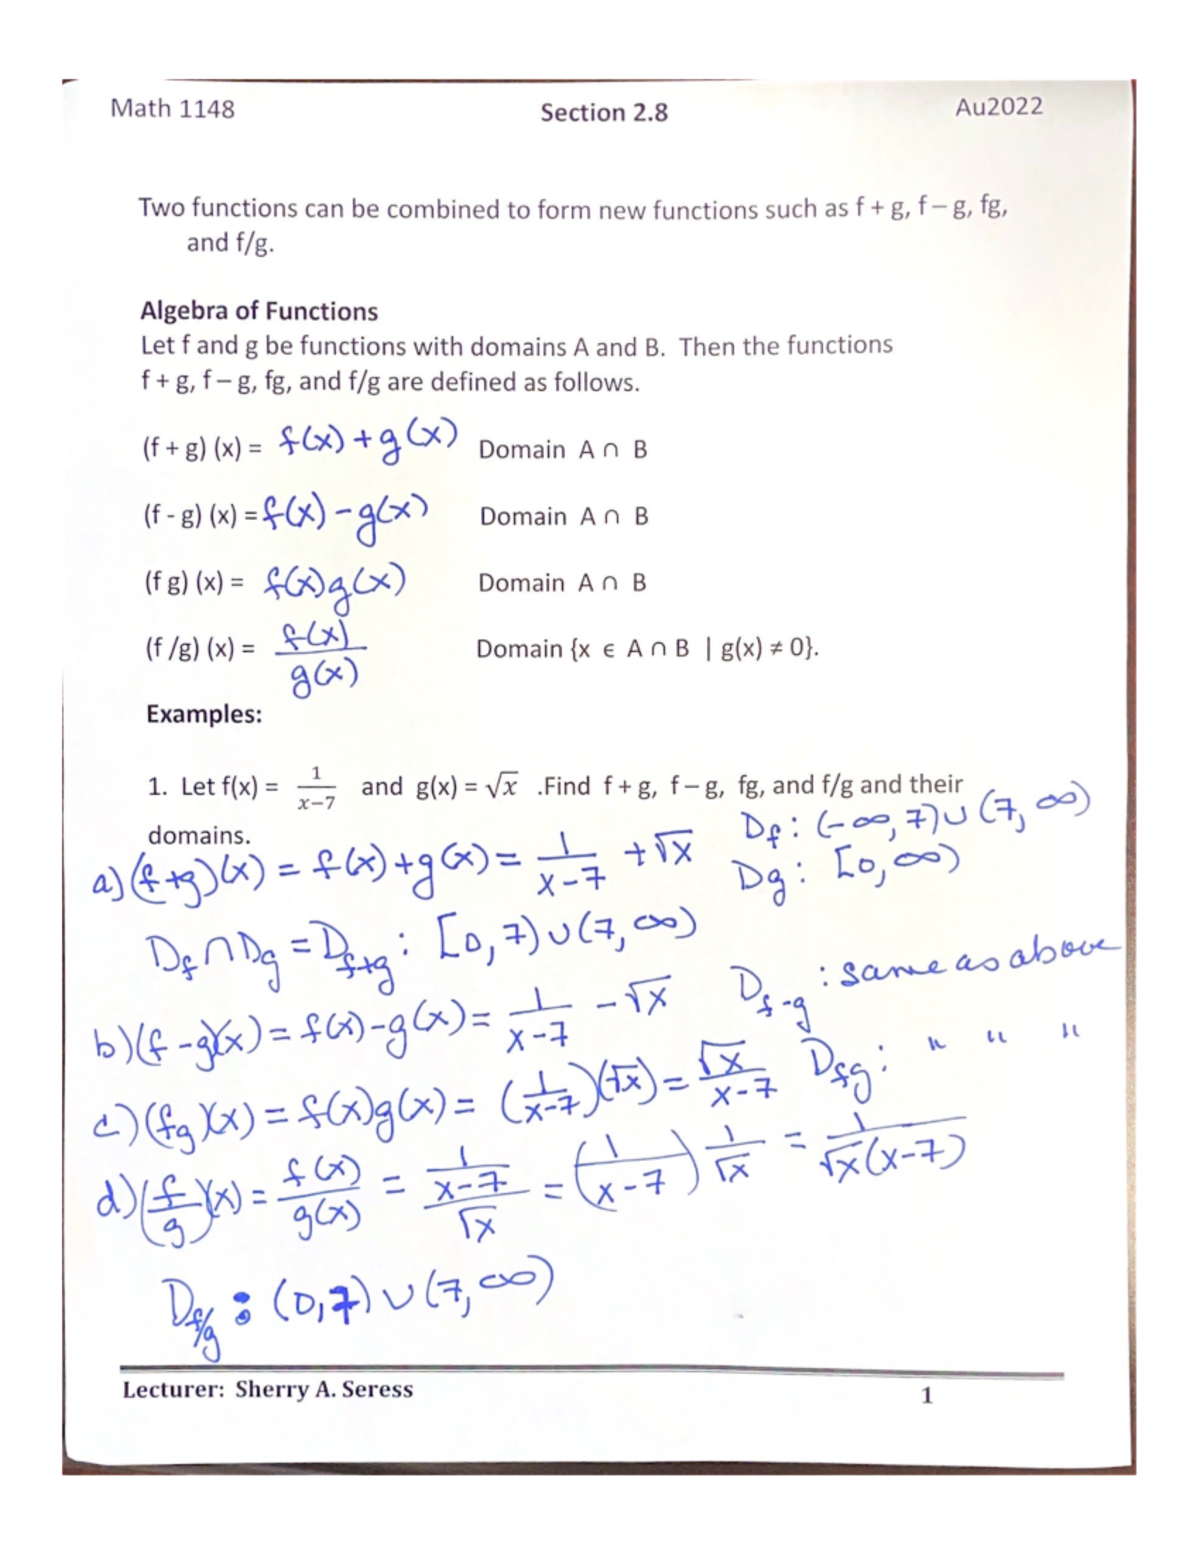 Math 1148 Section 2.8 Au2022
Two functions can be combined to form new functions such as f + g, f – g, fg,
and f/g.
Algebra of Functions
Let f and g be functions with domains A and B. Then the functions
f + g, f – g, fg, and f/g are defined as follows.
(f + g) (x) = f(x) + g(x) Domain A ∩ B
(f - g) (x) = f(x) - g(x) Domain A ∩ B
(f g) (x) = f(x)g(x) Domain A ∩ B
(f /g) (x) = f(x)/g(x) Domain {x ϵ A ∩ B | g(x) ≠ 0}.
Examples:
1. Let f(x) = 1/(x−7) and g(x) = √x .Find f + g, f – g, fg, and f/g and their
domains.
D_f : (-∞, 7) ∪ (7, ∞)
a) (f+g)(x) = f(x)+g(x) = 1/(x-7) + √x D_g : [0, ∞)
D_f ∩ D_g = D_f+g : [0, 7) ∪ (7, ∞)
b) (f-g)(x) = f(x)-g(x) = 1/(x-7) - √x D_f-g : same as above
c) (fg)(x) = f(x)g(x) = (1/(x-7))(√x) = √x/(x-7) D_fg : " " "
d) (f/g)(x) = f(x)/g(x) = (1/(x-7))/√x = (1/(x-7)) 1/√x = 1/(√x(x-7))
D_f/g : (0,7) ∪ (7, ∞)
Lecturer: Sherry A. Seress 1